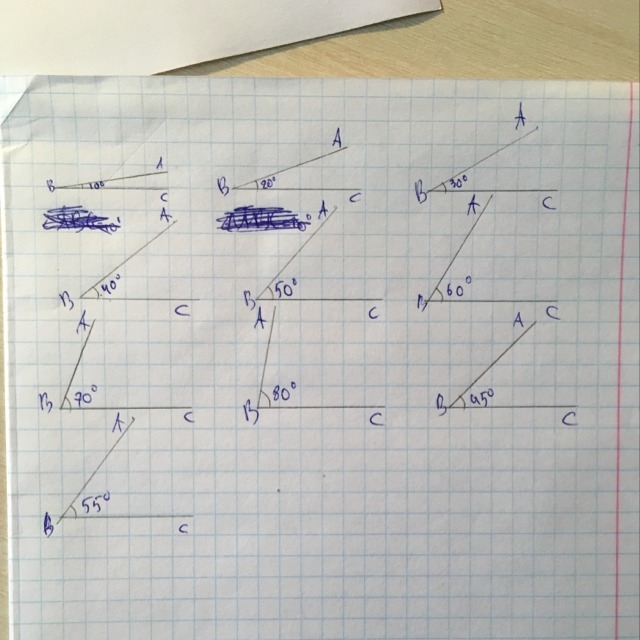 A A A
B 10° C B 20° C B 30° C
A A A
B 40° C B 50° C B 60° C
A A A
B 70° C B 80° C B 45° C
A
B 55° C